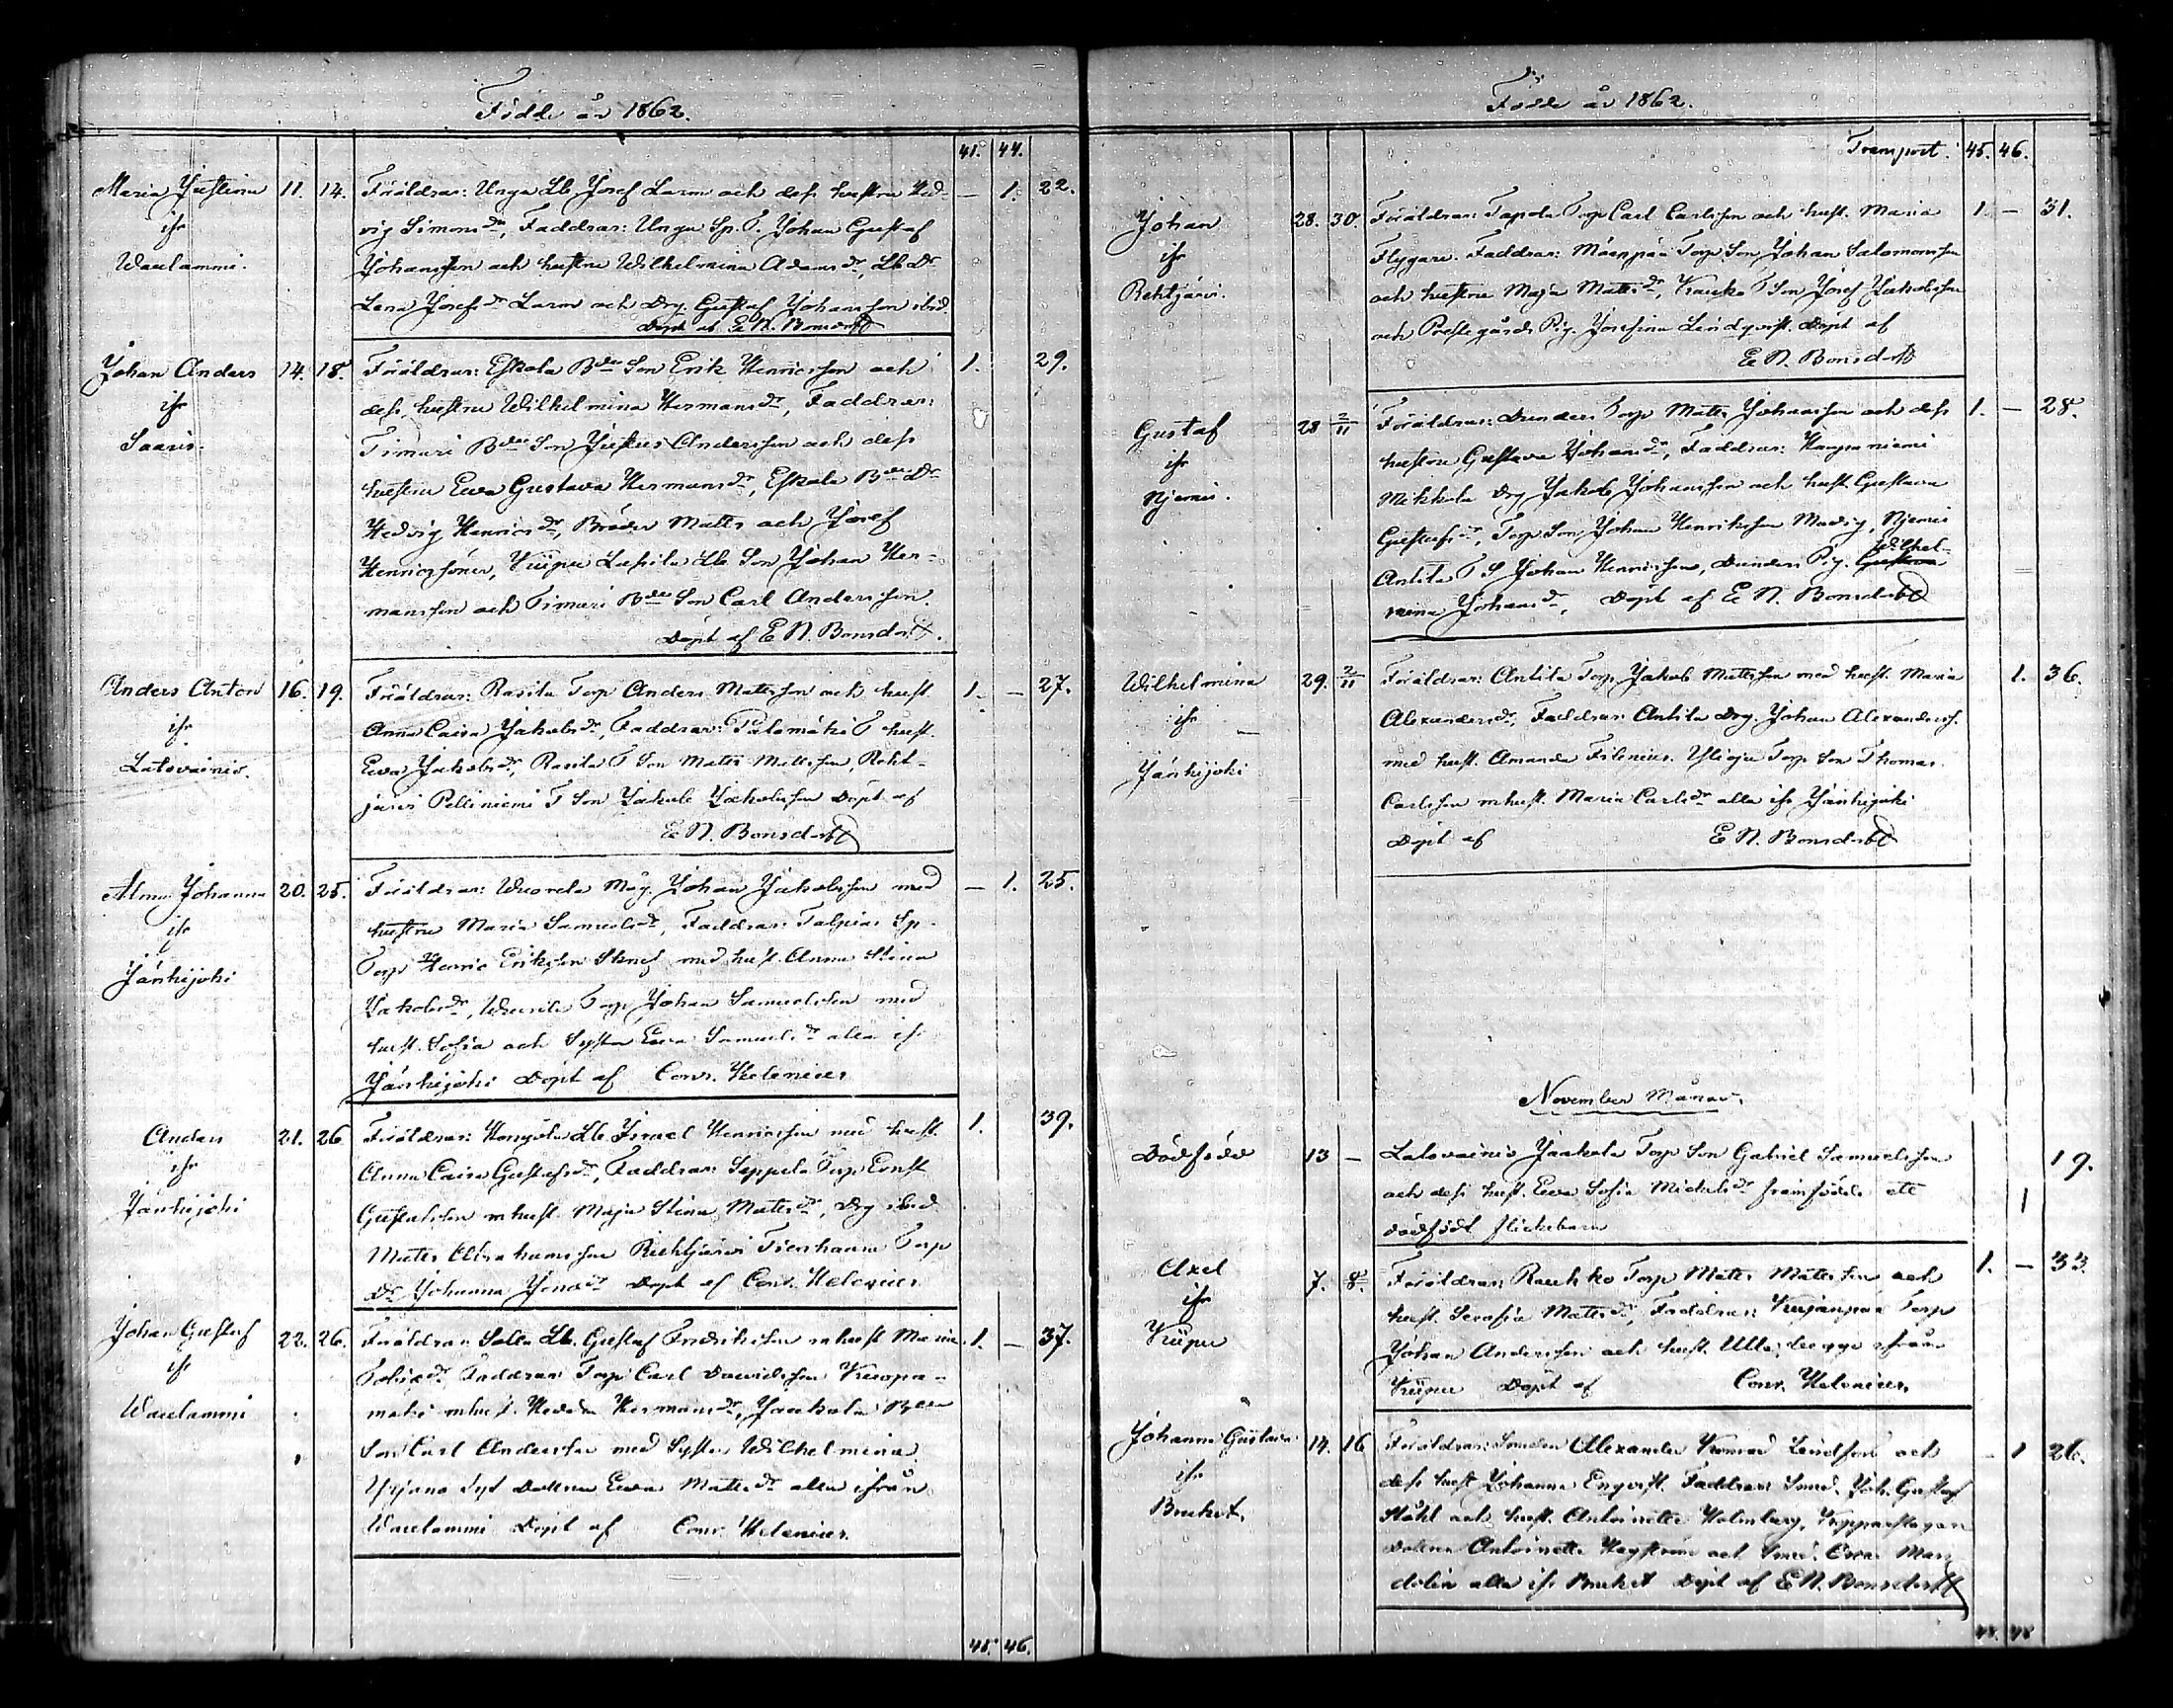 Födde år 1862.
41. 44.
Maria Justina 11. 14. Föräldrar: Unga Lb. Josef Larm och dess hustru Hed- — 1. 22.
ifr vig Simonsdr, Faddrar: Unga Sp. T. Johan Gustaf
Waulammi. Johansson och hustru Wilhelmina Adamsdr, Lb Dr
Lena Josefsdr Larm och Drg. Gustaf Johansson ibid.
Döpt af E N. Bonsdorff
Johan Anders 14. 18. Föräldrar: Eskola Bde Son Erik Henricsson och 1. 29.
ifr dess hustru Wilhelmina Hermansdr, Faddrar:
Saaris. Timari Bde Son Justus Andersson och dess
hustru Ewa Gustava Hermansdr, Eskola Bde Dr
Hedvig Henricsdr, Bröder Matts och Josef
Henricssöner, Kuipu Lassila Lb. Son Johan Her-
mansson och Timari Bde Son Carl Andersson.
Döpt af E N. Bonsdorff.
Anders Anton 16. 19. Föräldrar: Rasila Torp Anders Mattsson och hust. 1. — 27.
ifr Anna Caisa Jakobsdr, Faddrar: Palomäki T hust.
Latovainio. Ewa Jakobsdr, Rasila T Son Matts Mattsson, Reht-
järvi Pelliniemi T Son Jakob Jakobsson Döpt af
E N. Bonsdorff
Alma Johanna 20. 25. Föräldrar: Uuorela Måg. Johan Jakobsson med — 1. 25.
ifr hustru Maria Samuelsdr, Faddrar: Talpias Sp.
Jänhijoki Torp Henric Eriksson med hust. Anna Stina
Jakobsdr, Torp Johan Samuelsson med
hust. Sofia och Syster Ewa Samuelsdr alla ifr
Jänhijoki Döpt af Conr. Helenius
Anders 21. 26. Föräldrar: Lb. Israel Henricsson med hust. 1. 39.
ifr Anna Caisa Gustafsdr, Faddrar: Seppelä Torp Ernst
Jänhijoki Gustafsson m hust. Maja Stina Mattsdr, Drg ibid
Matts Abrahamsson Riehtjärvi Torp
Dr Johanna Döpt af Conr. Helenius
Johan Gustaf 22. 26. Föräldrar Lb. Gustaf Fredriksson m hust Maria 1. — 37.
ifr Faddrar Torp Carl Davidsson Kuopa-
Waulammi mäki m hust. Hedda Hermansdr, Jaakola Bde
Son Carl Andersson med Syster Wilhelmina
Yrjänä Dottren Ewa Mattsdr alla ifrån
Waulammi Döpt af Conr. Helenius.
45. 46.
Födde år 1862.
Transport. 45. 46.
Johan 28. 30. Föräldrar: Tapola Torp Carl Carlsson och hust. Maria 1. — 31.
ifr Flygare. Faddrar: Mäenpää Torp Son Johan Salomonsson
Rehtjärvi. och hustru Maja Mattsdr, T Son Josef Jakobsson
och Prestegårds Pig. Josefina Lindqvist. Döpt af
E N. Bonsdorff
Gustaf 28 2/11 Föräldrar: Torp Matts Johansson och dess 1. — 28.
ifr hustru Gustava Johansdr, Faddrar: Haapaniemi
Njemis. Mikkola Drg Jakob Johansson och hust. Gustava
Gustafsdr, Torp Son Johan Henriksson, Njemis
Antila T S Johan Henricsson, Pig. Gustava Wilhel-
mina Johansdr, Döpt af E N. Bonsdorff
Wilhelmina 29. 2/11 Föräldrar: Antila Torp Jakob Mattsson med hust. Maria 1. 36.
ifr Alexandersdr, Faddrar: Antila Drg. Johan Alexanderss.
Jänhijoki med hust. Amanda Filenius. Torp Son Thomas
Carlsson m hust. Maria Carlsdr alla ifr Jänhijoki
Döpt af E N. Bonsdorff
November Månad.
Dödfödd 13 — Latovainio Jaakola Torp Son Gabriel Samuelsson 19.
och dess hust. Ewa Sofia Michelsdr framfödde ett 1
dödfödt flickebarn
Axel 7. 8. Föräldrar: Rauhko Torp Matts Mattsson och 1. — 33.
ifr hust. Serafia Mattsdr, Faddrar: Kujanpää Torp
Kuipu Johan Andersson och hust. Ulla ifrån
Kuipu Döpt af Conr. Helenius.
Johanna Gustava 14. 16 Föräldrar: Smeden Alexander Konrad och — 1 26.
ifr dess hust Johanna Engvist. Faddrar: Smed. Joh. Gustaf
Bruket. Ståhl och hust. Antoinette Holmberg, Kopparslagare
Dottren Antoinette Hagström och Smed. Oscar Man-
delin alla ifr Bruket Döpt af E N. Bonsdorff
48. 48